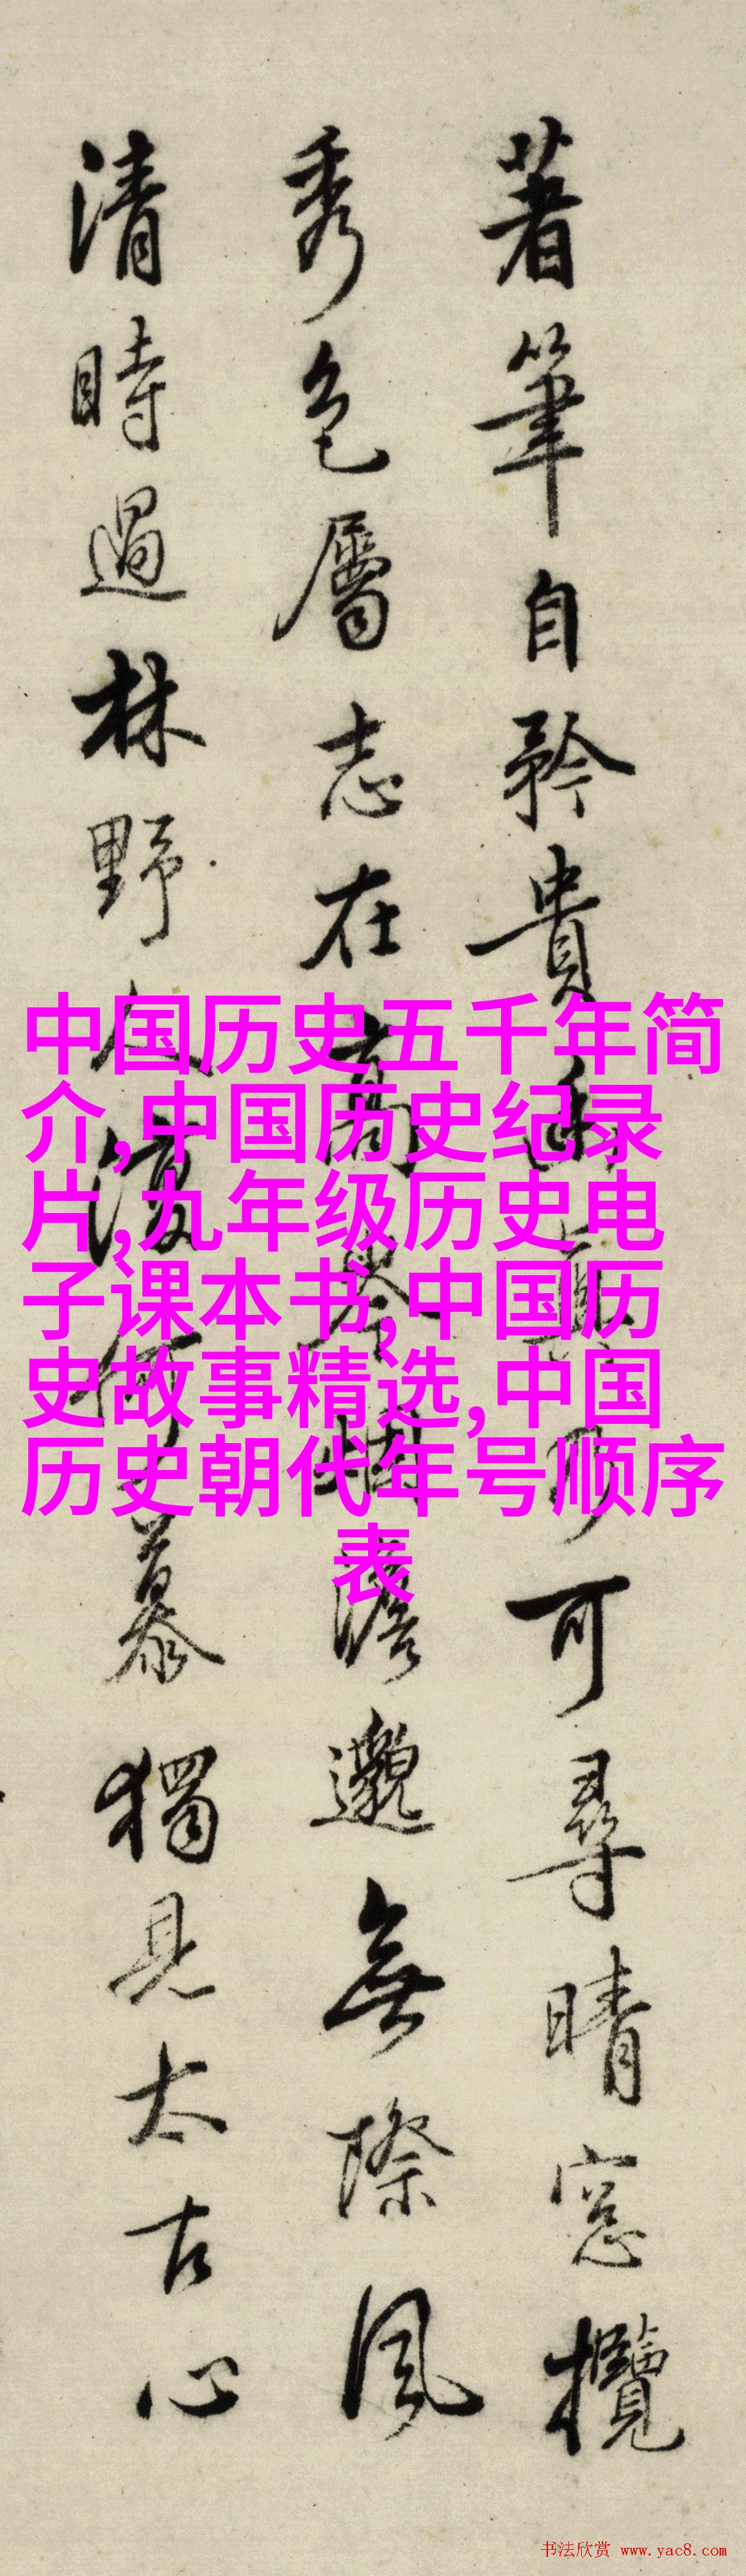 著筆自矜貴幽真乃可尋晴窓攬
秀色屬志在高岑恬澹邈無際風
清時過林野人復何慕獨見太古心
中国历史五千年简
介,中国历史纪录
片,九年级历史电
子课本书,中国历
史故事精选,中国
历史朝代年号顺序
表
书法欣赏 www.yac8.com